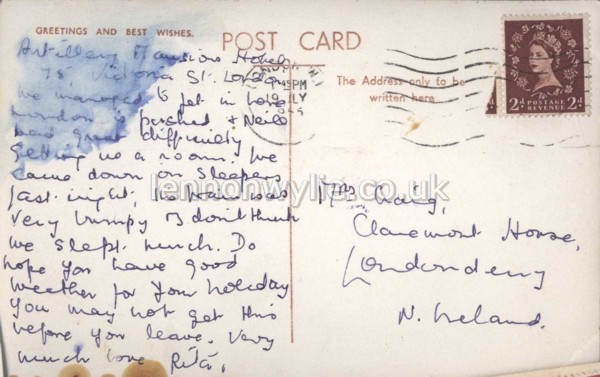 GREETINGS AND BEST WISHES.
POST CARD
The Address only to be
written here
POSTAGE
REVENUE
2d 2d
Artillery Mansions Hotel
75 Victoria St. London
We managed to get in here
London is packed & Neill
had great difficulty
getting us a room. We
came down on Sleepers
last night, the train was
very bumpy & don't think
we slept much. Do
hope you have good
weather for your holiday
You may not get this
before you leave. Very
much love Rita.
Mrs Craig,
Claremont House,
Londonderry
N. Ireland.
lennonwylie.co.uk